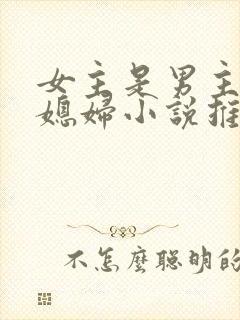 女主是男主
媳婦小說推
不怎麼聰明的